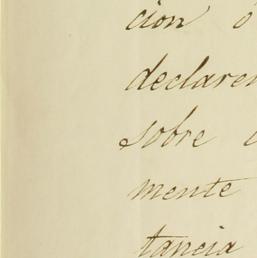 cion ó
declaren
sobre
mente
tancia